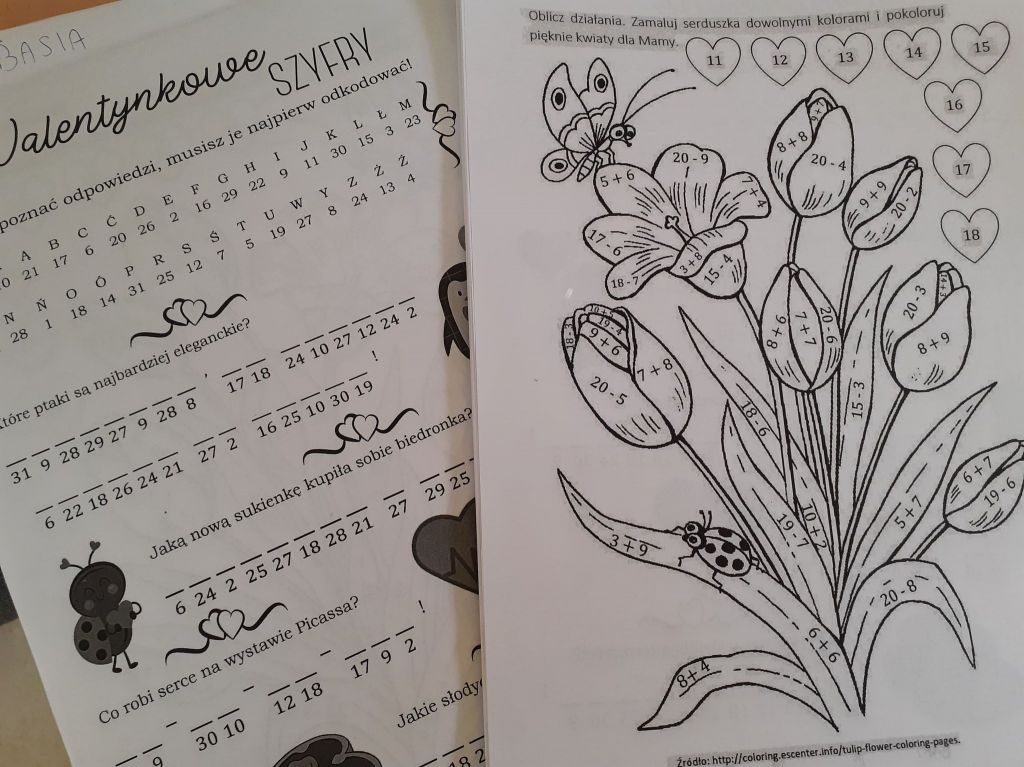 BASIA
Valentynkowe
SZYFRY
poznać odpowiedzi, musisz je najpierw odkodować!
Ą B C Ć D E F G H I J K L Ł M
10 21 17 6 20 26 2 16 29 22 9 11 30 15 3 23
N Ń O Ó P R S Ś T U W Y Z Ź Ż
28 1 18 14 31 25 12 7 5 19 27 8 24 13 4
które ptaki są najbardziej eleganckie?
31 9 28 29 27 9 28 8 , 17 18 24 10 27 12 24 2
6 22 18 26 24 21 27 2 16 25 10 30 19 !
Jaką nową sukienkę kupiła sobie biedronka?
6 24 2 25 27 18 28 21 27 29 25
Co robi serce na wystawie Picassa?
9 - 30 10 - 12 18 - 17 9 2 !
Jakie słody
18 2
Oblicz działania. Zamaluj serduszka dowolnymi kolorami i pokoloruj
pięknie kwiaty dla Mamy.
11 12 13 14 15
16
17
18
8 + 8
20 - 4
9 + 9
20 - 2
20 - 9
5 + 6
7 + 4
17 - 6
18 - 7
3 + 8
15 - 4
18 - 3
9 + 6
7 + 8
20 - 5
8 + 6
7 + 7
20 - 6
20 - 3
14 + 3
8 + 9
15 - 3
18 - 6
6 + 7
19 - 6
5 + 7
10 + 2
19 - 7
3 + 9
20 - 8
6 + 6
8 + 4
Źródło: http://coloring.escenter.info/tulip-flower-coloring-pages.